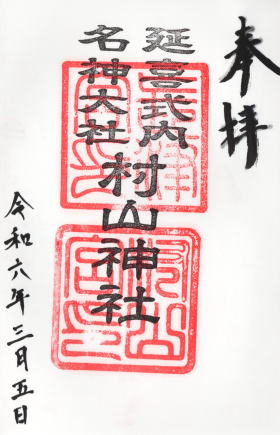 奉拝
延喜式内
名神大社
村山神社
令和六年三月五日